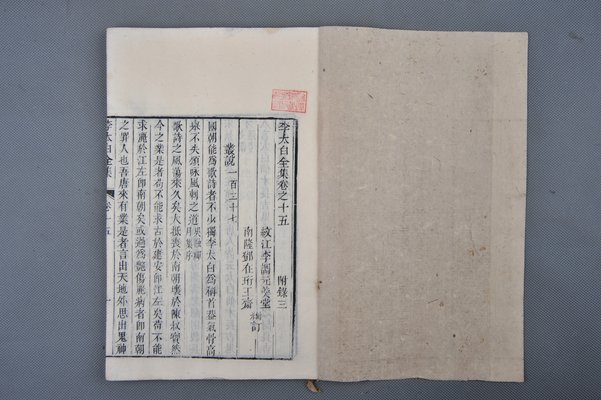 李太白全集卷之十五 附錄三
紋江李調元美堂
南隆鄧在珩玉齋 編訂
叢說一百三十七
國朝能為歌詩者不少獨李太白為稱首蓋氣骨高
泉不失頌詠風刺之道 吳融禪月集序
歌詩之風蕩來久矣大抵喪於南朝壞於陳叔寶然
今之業是者苟不能求古於建安即江左矣苟不能
求麗於江左即南朝矣或過為艷傷麗病者即南朝
之罪人也吾唐來有業是者言出天地外思出鬼神
李太白全集 卷十五 一